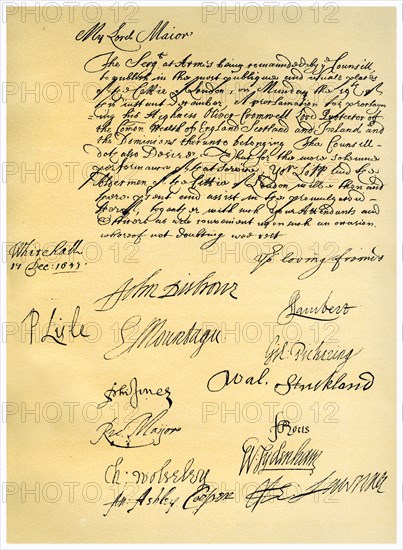 My Lord Maior
The Serg.t at Arms being commanded by ye Counsill
to publish in the most publique and usuall places
of ye Cittie of London, on Munday the 19th of
this instant December, A proclamation for proclaim
ing his Highness Oliver Cromwell Lord Protector of
the Comon Wealth of England Scotland and Ireland and
the Dominions thereunto belonging. The Counsill
doe also Desire that for the more solemne
performance of that service, Yor Lopp and ye
Aldermen of the Cittie of London will be then and
there present and assist in
together with such your Attendants and
Officers as are convenient upon such an occasion,
whereof not doubting wee rest
Yor loving friends
Whitehall
17 Dec: 1653
John Disbrowe
Lambert
P Lisle
E Mountagu
Gil. Pickering
Wal. Strickland
Phi Jones
F Rous
Ric. Major
W Sydenham
Ch: Wolseley
An: Ashley Cooper
He: Lawrence